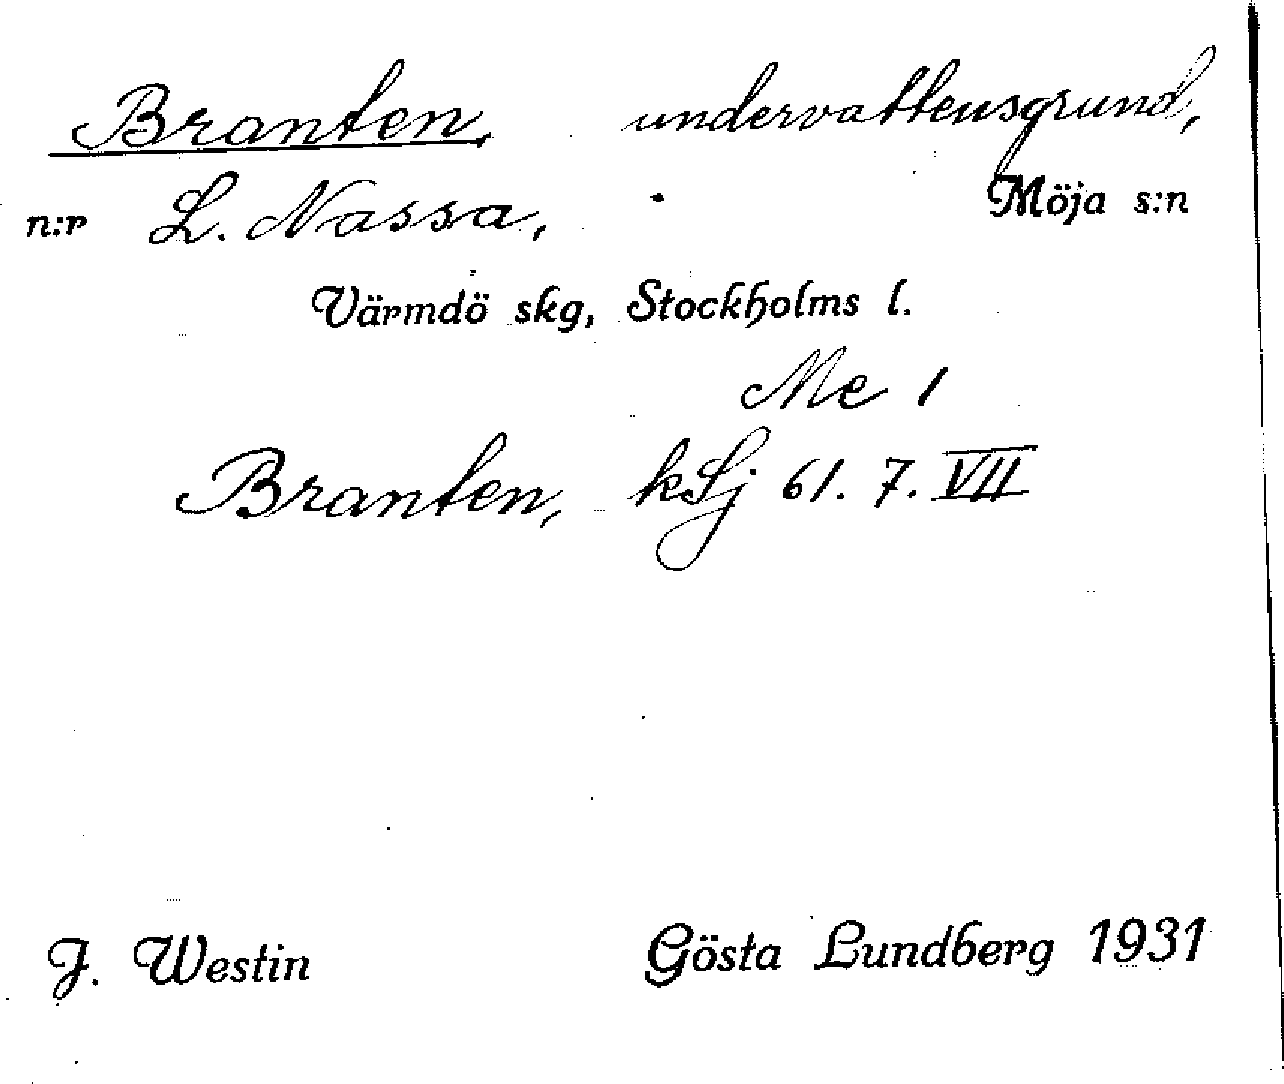 Branten, undervattensgrund,
n:r L. Nassa, Möja s:n
Värmdö skg, Stockholms l.
Me 1
Branten, kSj 61. 7. VII
J. Westin Gösta Lundberg 1931